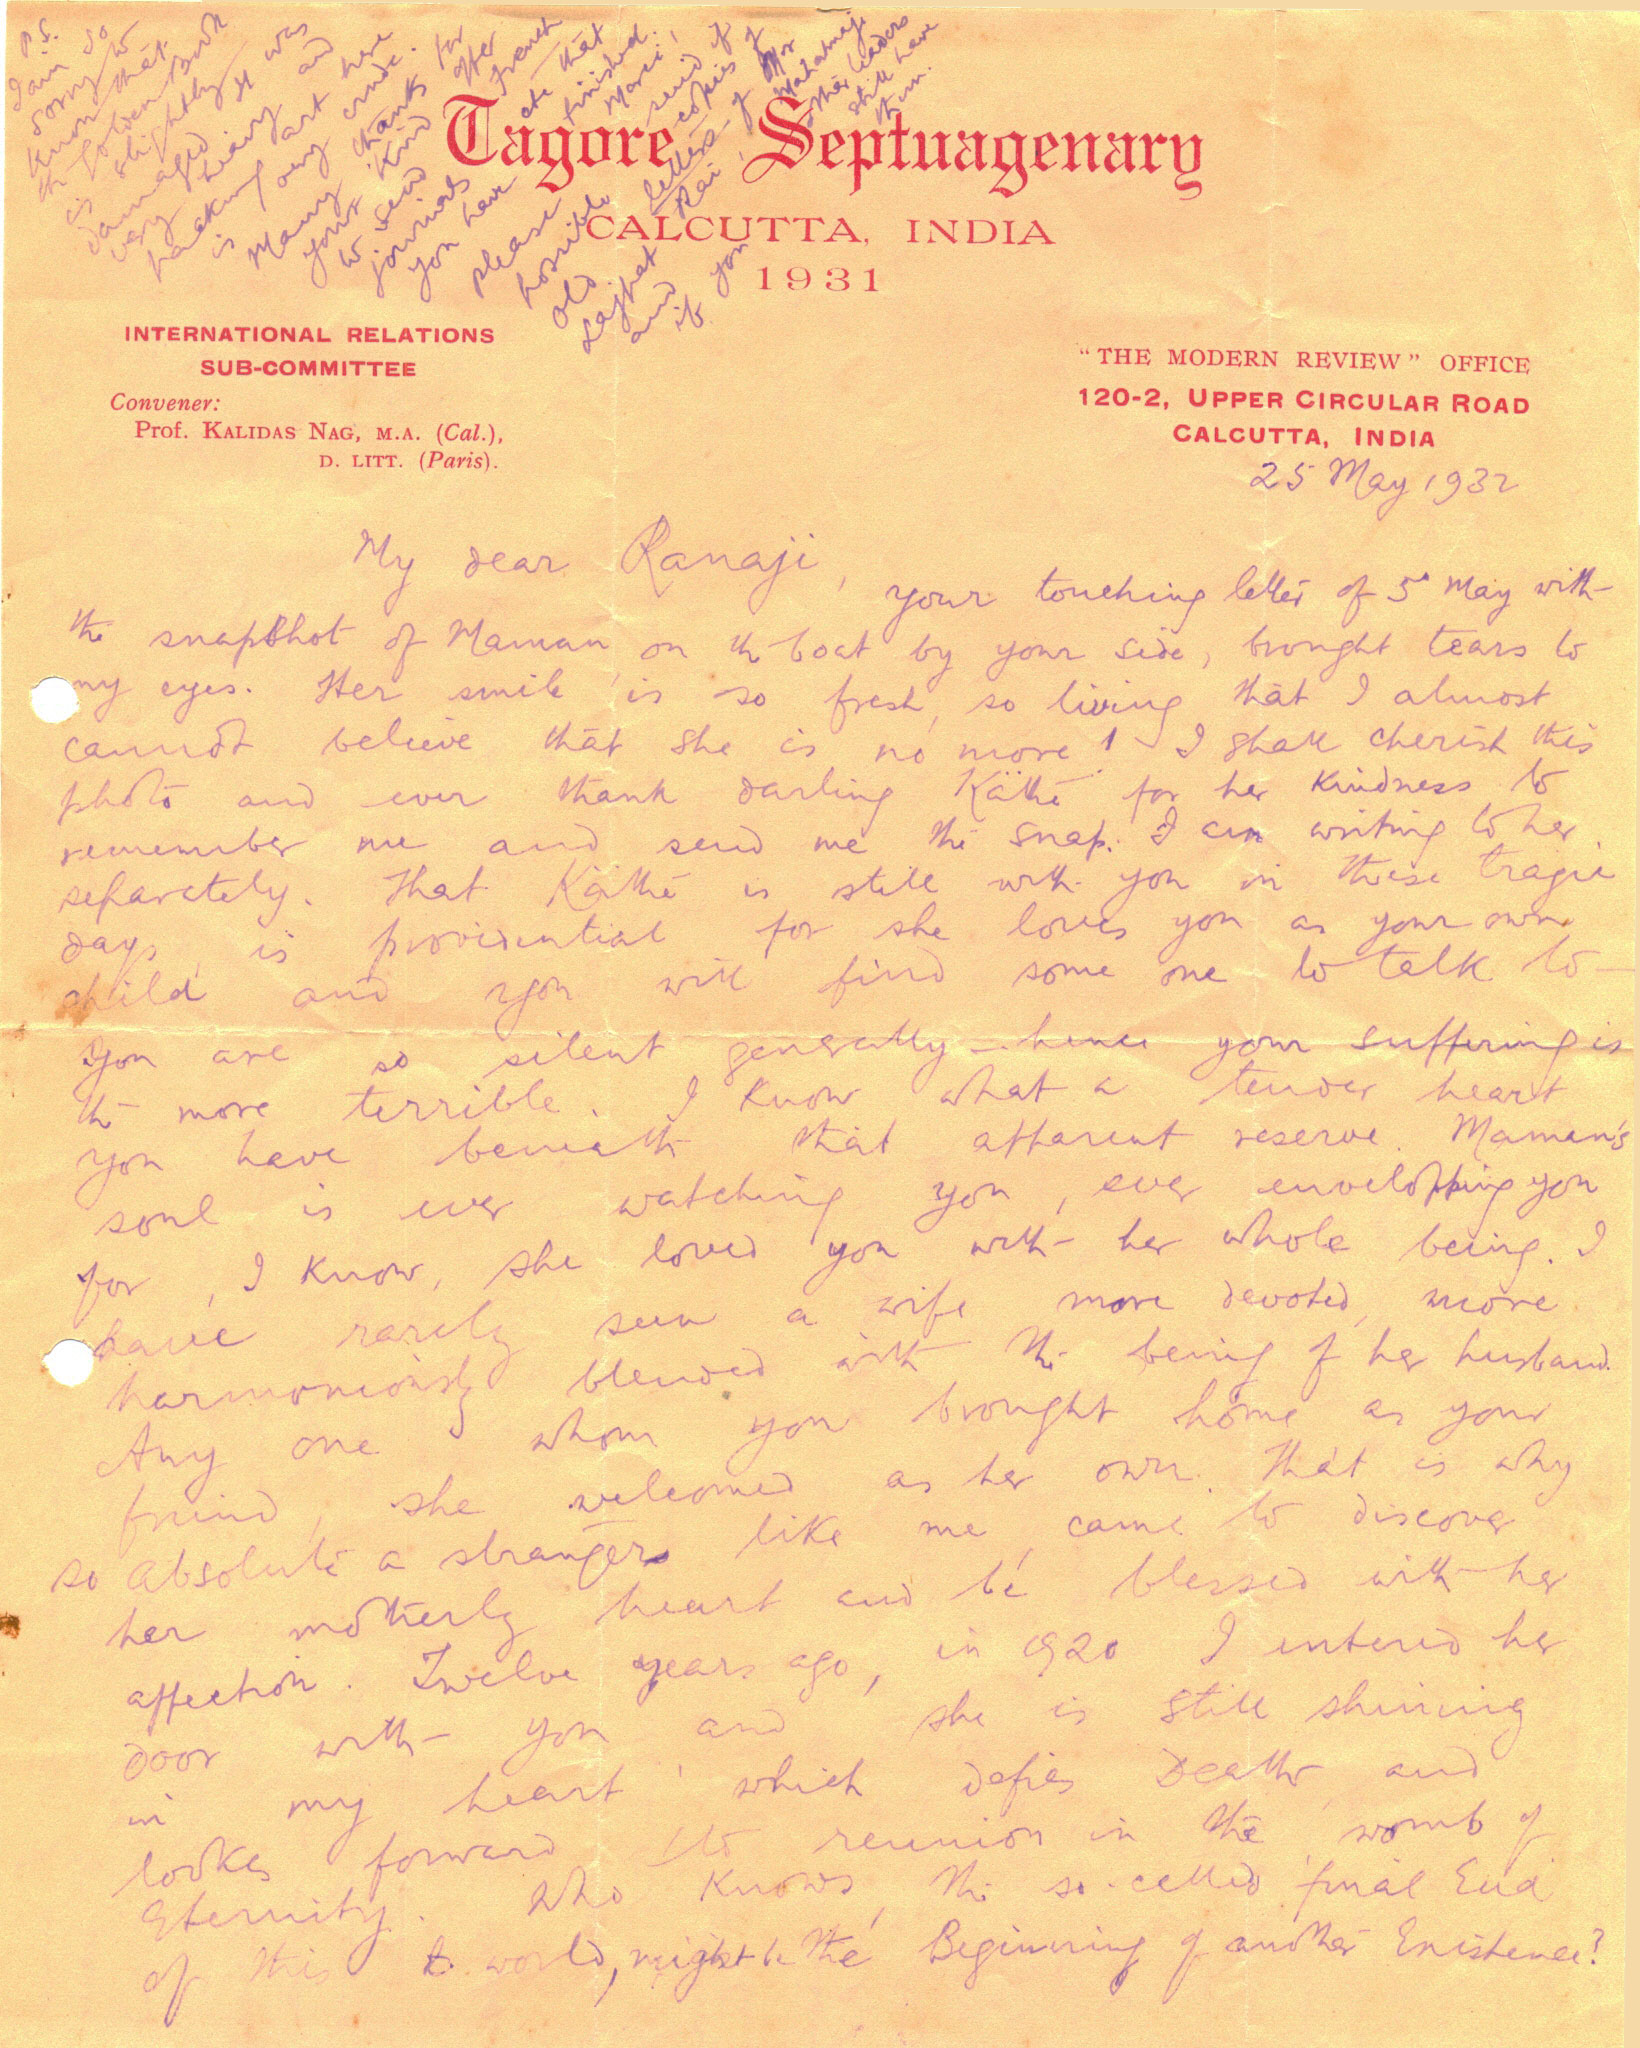 P.S.
I am so
sorry to
know that
the Golden Book
is slightly
damaged. It was
very heavy and
packing art here
is very crude.
Many thanks for
your kind offer
to send French
journals etc that
you have finished.
Merci!
Please send if
possible copies of
old letters of Mr
Lajpat Rai, Mahatmaji
and other leaders
if you still have
them.
Tagore Septuagenary
CALCUTTA, INDIA
1931
INTERNATIONAL RELATIONS
SUB-COMMITTEE
Convener:
Prof. KALIDAS NAG, M.A. (Cal.),
D. LITT. (Paris).
"THE MODERN REVIEW" OFFICE
120-2, UPPER CIRCULAR ROAD
CALCUTTA, INDIA
25 May 1932
My dear Ranaji,
your touching letter of 5 May with
the snapshot of Maman on the boat by your side, brought tears to
my eyes. Her smile is so fresh, so living that I almost
cannot believe that she is no more! I shall cherish this
photo and ever thank darling Käthe for her kindness to
remember me and send me the snap. I am writing to her
separately. That Käthe is still with you in these tragic
days, is providential for she loves you as your own
child and you will find some one to talk to—
You are so silent generally — hence your suffering is
the more terrible. I know what a tender heart
you have beneath that apparent reserve. Maman's
soul is ever watching you, ever envelopping you
for, I know, she loved you with her whole being. I
have rarely seen a wife more devoted, more
harmoniously blended with the being of her husband.
Any one whom you brought home as your
friend, she welcomed as her own. That is why
so absolute a stranger like me came to discover
her motherly heart and be blessed with her
affection. Twelve years ago, in 1920 I entered her
door with you and she is still shining
in my heart, which defies Death and
looks forward to reunion in the womb of
Eternity. Who knows, the so-called final End
of this world, might be the Beginning of another Existence?